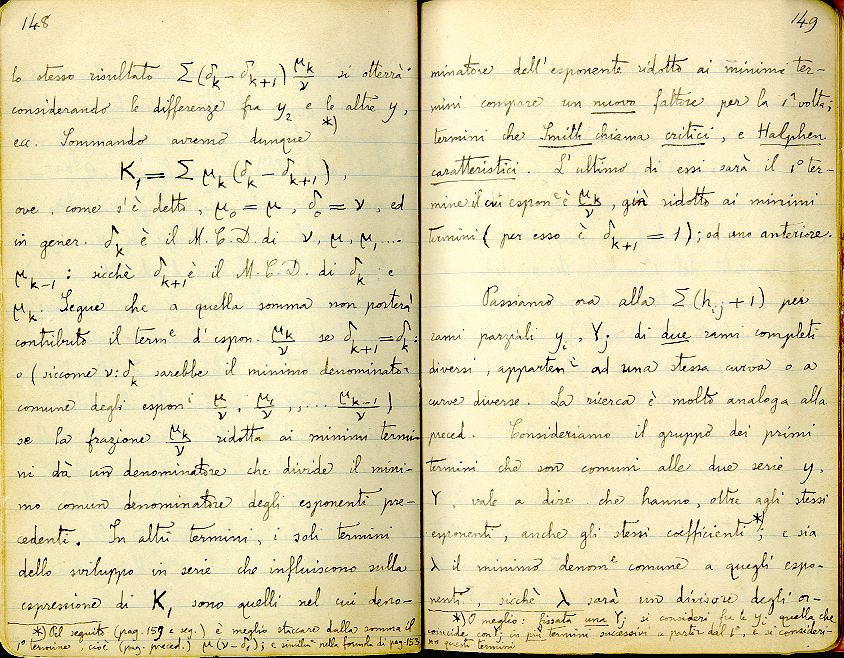 148
lo stesso risultato Σ(δ_k − δ_{k+1}) μ_k/ν si otterrà
considerando le differenze fra y_2 e le altre y,
ecc. Sommando avremo dunque *)
K_1 = Σ μ_k (δ_k − δ_{k+1}),
ove, come s'è detto, μ_0 = μ, δ_0 = ν, ed
in gener. δ_k è il M.C.D. di ν, μ, μ_1, ...
μ_{k−1}: sicchè δ_{k+1} è il M.C.D. di δ_k e
μ_k. Segue che a quella somma non porterà
contributo il term^e d'espon. μ_k/ν se δ_{k+1} = δ_k:
o (siccome ν:δ_k sarebbe il minimo denominator
comune degli espon^i μ/ν, μ_1/ν, ... μ_{k−1}/ν)
se la frazione μ_k/ν ridotta ai minimi termi-
ni dà un denominatore che divide il mini-
mo comun denominatore degli esponenti pre-
cedenti. In altri termini, i soli termini
dello sviluppo in serie che influiscono sulla
espressione di K_1 sono quelli nel cui deno-
*) Pel seguito (pag. 159 e seg.) è meglio staccare dalla somma il
1° termine, cioè (pag. preced.) μ(ν−δ_1); e similm^e nella formula di pag. 153.
149
minatore dell'esponente ridotto ai minimi ter-
mini compare un nuovo fattore per la 1ª volta;
termini che Smith chiama critici, e Halphen
caratteristici. L'ultimo di essi sarà il 1° ter-
mine il cui espon^e è μ_k/ν, già ridotto ai minimi
termini (per esso è δ_{k+1} = 1); od uno anteriore.
Passiamo ora alla Σ(h_{ij}+1) per
rami parziali y_i, Y_j di due rami completi
diversi, apparten^i ad una stessa curva o a
curve diverse. La ricerca è molto analoga alla
preced. Consideriamo il gruppo dei primi
termini che son comuni alle due serie y,
Y, vale a dire che hanno, oltre agli stessi
esponenti, anche gli stessi coefficienti *); e sia
λ il minimo denom^e comune a quegli espo-
nenti, sicchè λ sarà un divisore degli or-
*) O meglio: fissata una Y_j si consideri fra le y_i quella che
coincide con Y_j in più termini successivi a partir dal 1°, e si consideri-
no questi termini